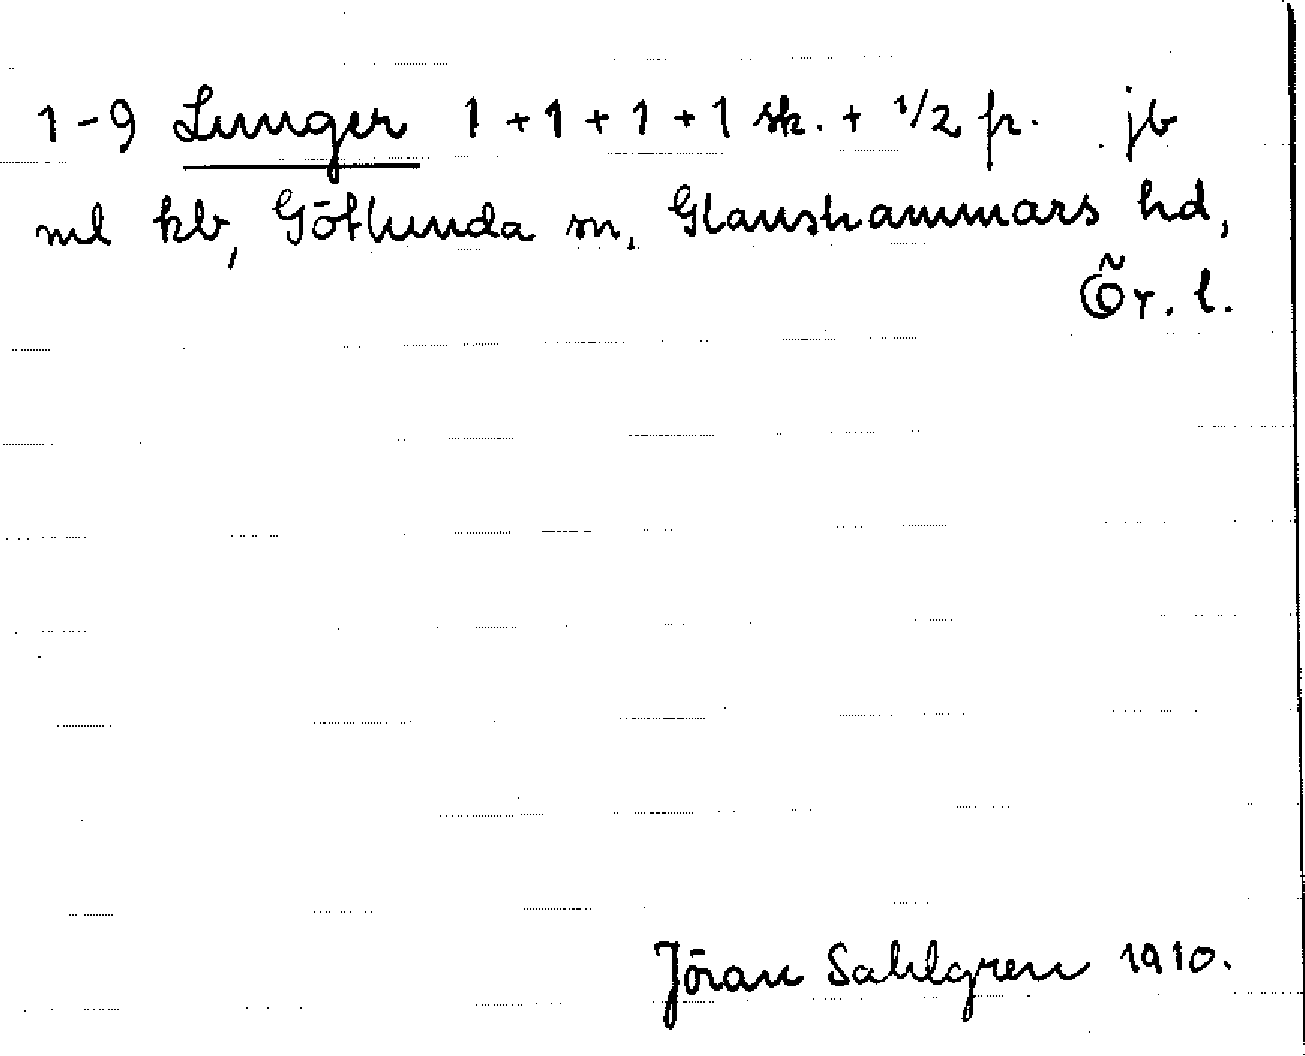 1-9 Lunger 1 + 1 + 1 + 1 sk. + 1/2 fr. jb
ml kb, Götlunda sn, Glanshammars hd,
Ör. l.
Jöran Sahlgren 1910.